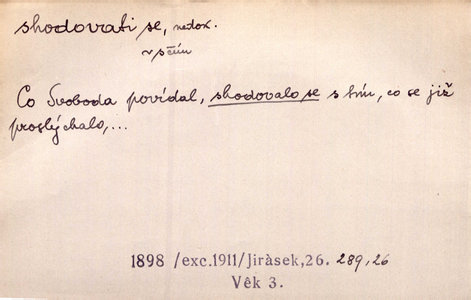 shodovati se, nedok.
v přím
Co Svoboda povídal, shodovalo se s tím, co se již
proslýchalo,...
1898 /exc.1911/Jiràsek,26. 289,26
Vêk 3.